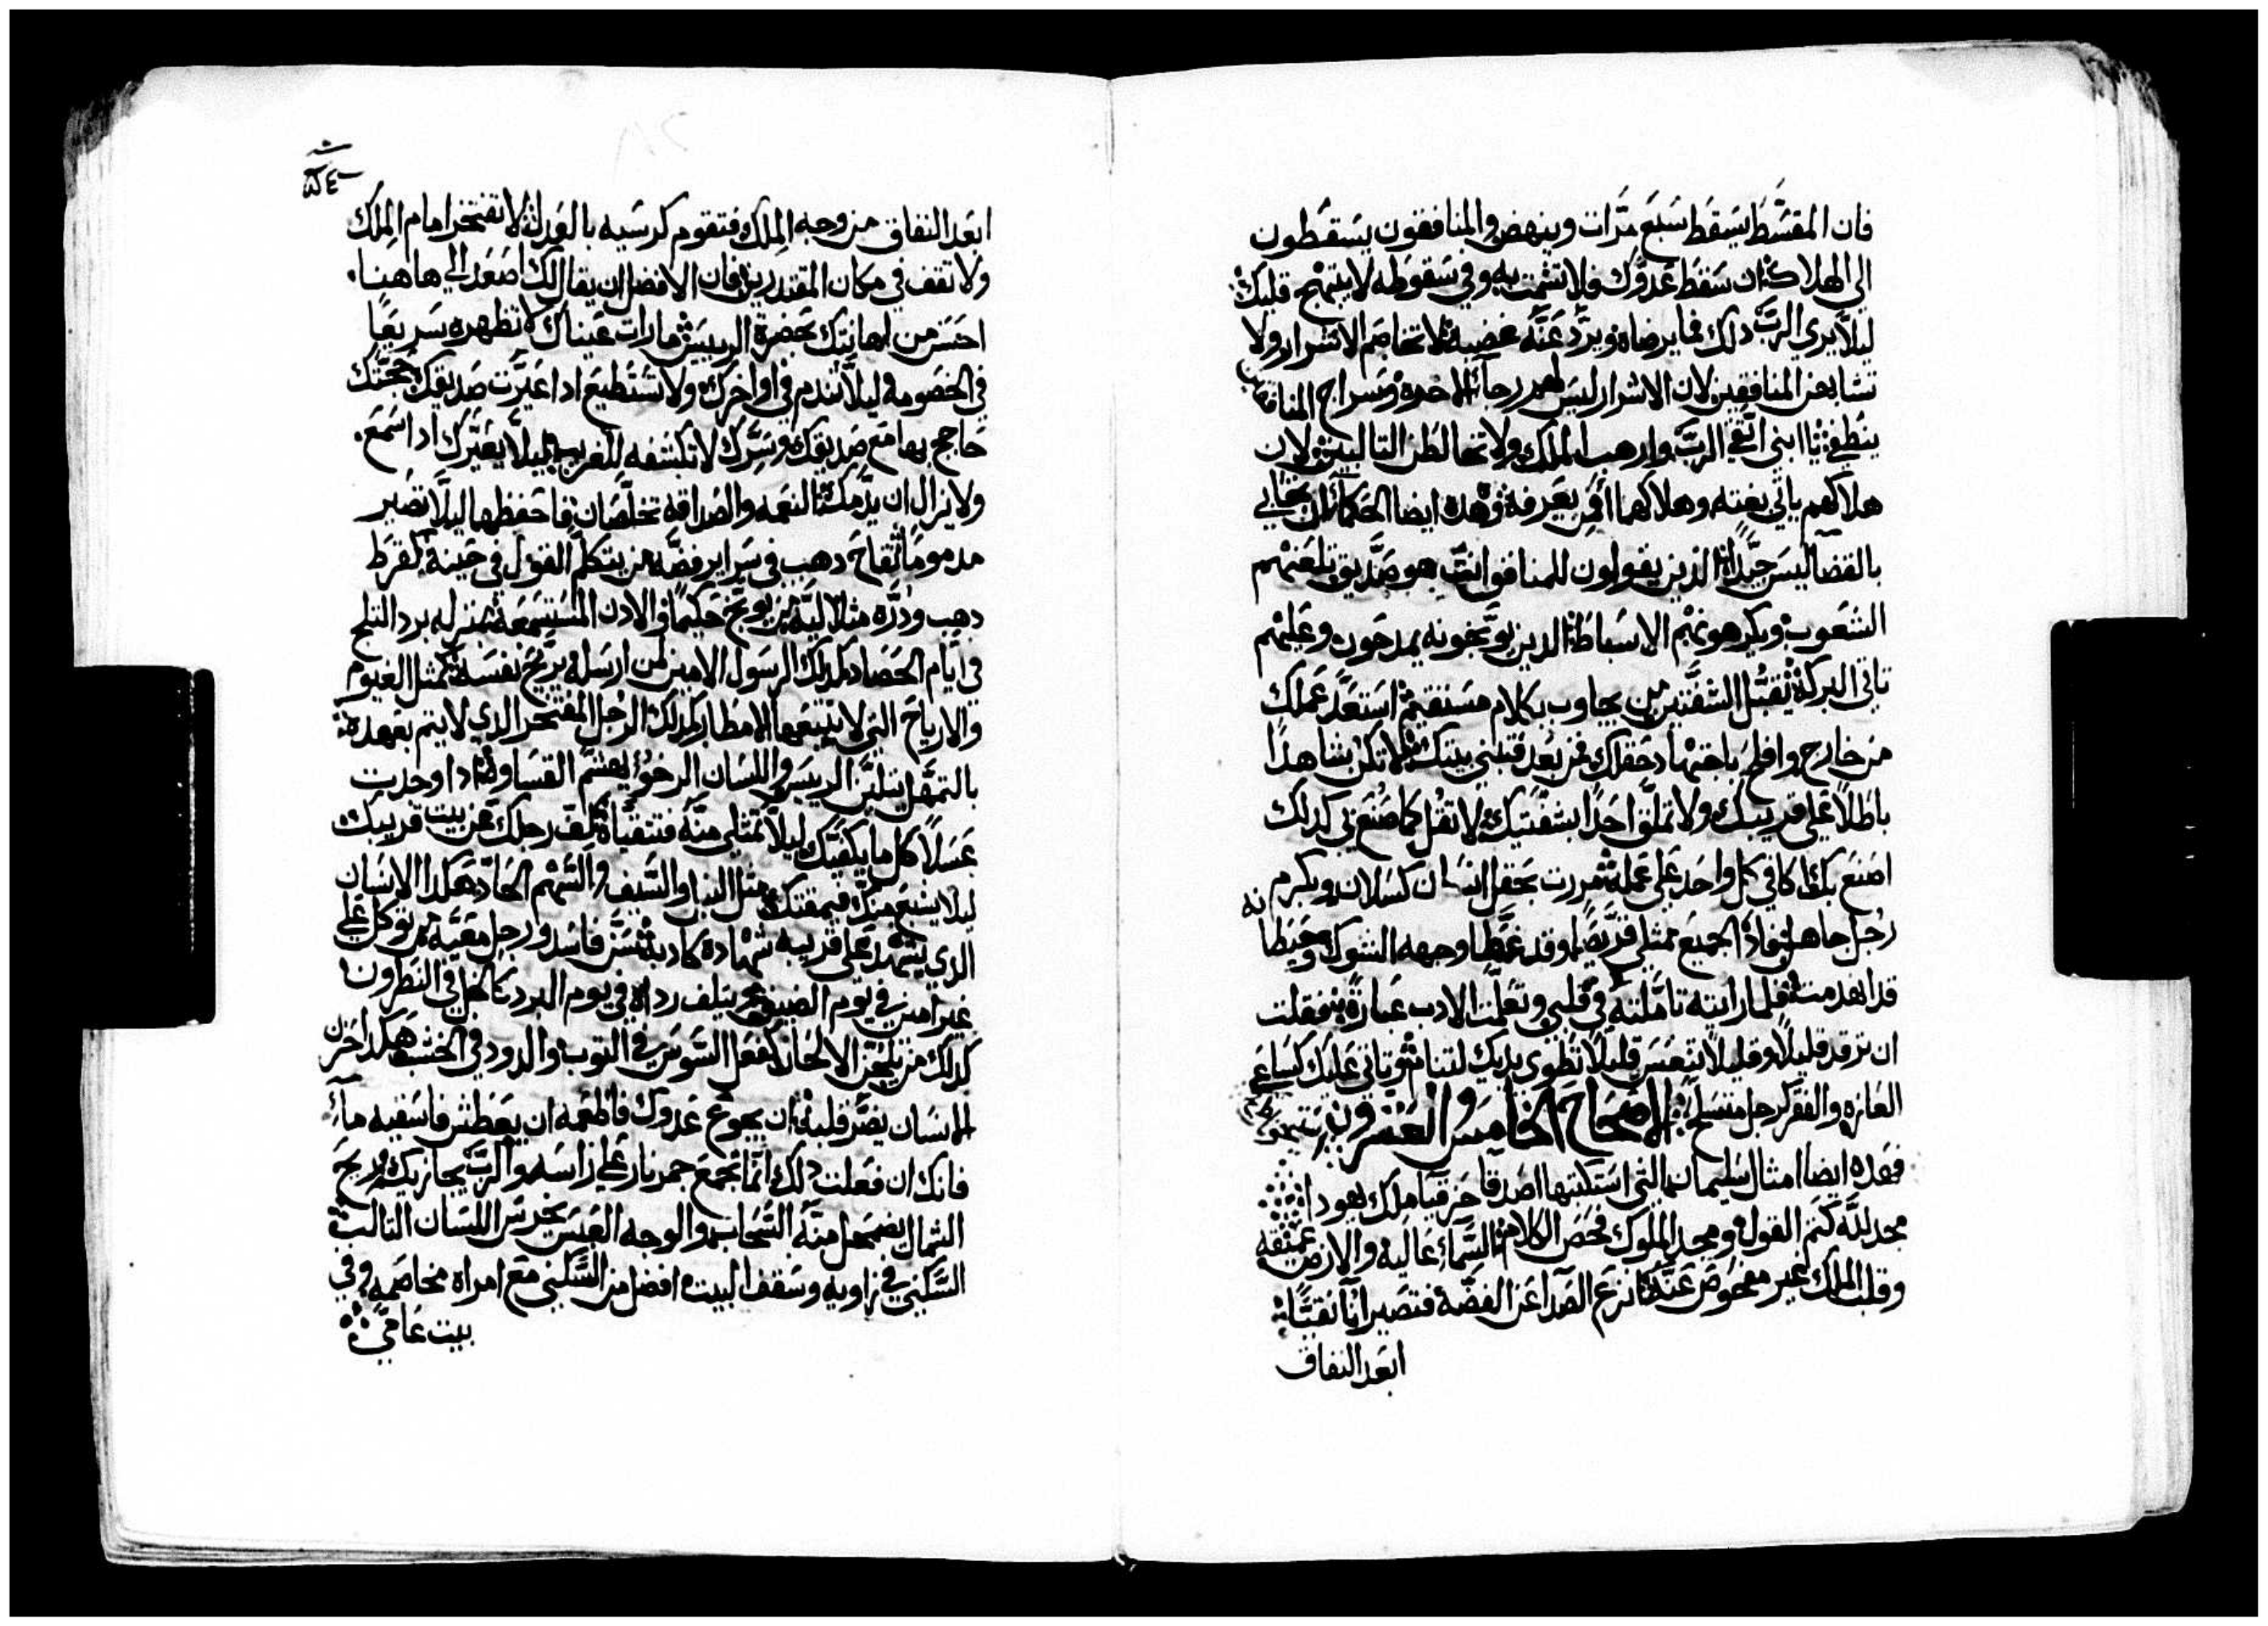 فان المقسَط يسَقط سَبعَ مرَّات وينهض والمنافقون يسَقطون
الى الهلاك ان سَقط عَدوَّك فلا تشمت به وفي سَقوطه لا يبتهج قلبك
ليلّا يرى الربّ دلك فما يرضاه ويردّ عَنَّه غضبه لا تخاصَم الاشرار ولا
تشابهن المنافقين لان الاشرار ليسَ لهم رجآ للاخره وسَراج المنافقين
ينطفي يا ابني اتَّقي الربّ وارهب الملك ولا تخالطن التالبين لان
هلاكهم ياتي بغته وهلاكهما من يعَرفه وهده ايضا للحكمآ ان تحابي
بالقضآ ليسَ جيّدًا الدين يقولون للمنافق انت هو صَدّيق تلعَنهم
الشعَوب ويكرهونهم الاسَباط الدين يوَّبخونه يمدحَون وعَليهم
تاتي البركة تقبَّل الشفَّتين من يجاوب بكلام مسَتقيم اسَتعَدَّ عَملك
من خارج وافلحَ باجتهاد حَقلك فمن بعَد فتبني بيتك لا تكن شاهدًا
باطلًا عَلى قريبك ولا تملَّق احَدًا بشفتيك لا تقل كما صَنعَ بي كدلك
اصَنعَ به كافي كل واحَد عَلى عَمله مررت بحَقل انسَان كسَلان وبكرم
رجُل جاهل فوادا الجميعَ ممتلي قريصَا وقد غَطَّا وجهه الشوك وحَيطه
قد انهدمت فلما رايته تامَّلته في قلبي وتعَلَّمت الادب عبارةً فقلت
ان ترقد قليلًا وقليلًا تنعَسَ قليلًا تطوي يديك لتنام وتاتي عَليك كسَاعي
العَازه والفقر كرجل متسَلّحَ الاصحَاحَ الخامسَ والعَشرون
فهَده ايضا امثال سَليمان التي اسَتكتبها اصَدقا حَزقيا ملك يهودا
مجد للّه كتم القول ومجد الملوك فحَصَ الكلام السَّمآ عَاليه والارض عَميقه
وقلب الملك غير مفحَوصَ عَنه انزعَ الصَدا عَن الفضَّة فتصَير انآ نقيًا
ابعَد النفاق
ابعَد النفاق من وجه الملك فتقوم كرسَيه بالعَدل لا تفتخر امام الملك
ولا تقف في مكان المقتدرين فان الافضل ان يقال لك اصَعَد الى هاهنا
احَسَن من اهانتك بحَضرة الرييسَ ما رات عَيناك لا تظهره سَريعًا
في الخصَومه ليلّا تندم في اواخرك ولا تسَتطيعَ ادا عَيَّرت صَديقك حجتك
حَاجج بها معَ صَديقك وسَرّك لا تكشفه للغريب ليلّا يعَيّرك ادا سَمعَ
ولا يزال ان يدَّمك النعَمه والصَداقه تخلّصَان فاحَفظهما ليلّا تصَير
مدمومًا تفاحَ دهب في سَراير فضَّه من يتكلّم القول في حَينه كقرط
دهب ودرَّه متلاليّه من يوبّخ حَكيمًا والادن المسَتمعَة بمنزله برد التلج
في ايّام الحَصَاد كدلك الرسَول الامين لمن ارسَله يريّحَ نفسَه كمثل الغيوم
والارياحَ التي لا تتبعَها الامطار كدلك الرجُل المفتخر الدي لا يتم بعَهده
بالتمهَّل يتليَّن الرييسَ واللسَان الرخو يهشم القسَاوه ادا وجدت
عَسَلًا كل ما يكفيّك ليلّا تمتلي منّه فتتقيّاه كفّ رجلك عَن بيت قريبك
ليلا يشبَعَ منّك فيمقتك مثل النبل والسَّيف والسَّهم الحَادّ هكدا الانسَان
الدي يشهد عَلى قريبه شهادة كادبه سَنّ فاسَد ورجل معَيّه من توكل عَلى
غير امين في يوم الضيق من يتلف رداه في يوم البرد كالخل في النطرون
كدلك من يلحَن الالحَان كفعَل السَوسَ في التوب والدود في الخشب هكدا حَزن
الانسَان يضَّر قلبه ان يجوعَ عَدوك فاطعَمه ان يعَطش فاسَقيه مآء
فانك ان فعَلت دلك انّما تجمعَ جمر نار عَلى راسَه والربّ يجازيك ريحَ
الشمال يضمحَل منّه السَّحَاب والوجه العَبسَ يخرسَ اللسَان التالب
السَّكنى في زاويه وسَقف البيت افضل من السَّكنى معَ امراه مخاصَمه وفي
بيت عَامّي